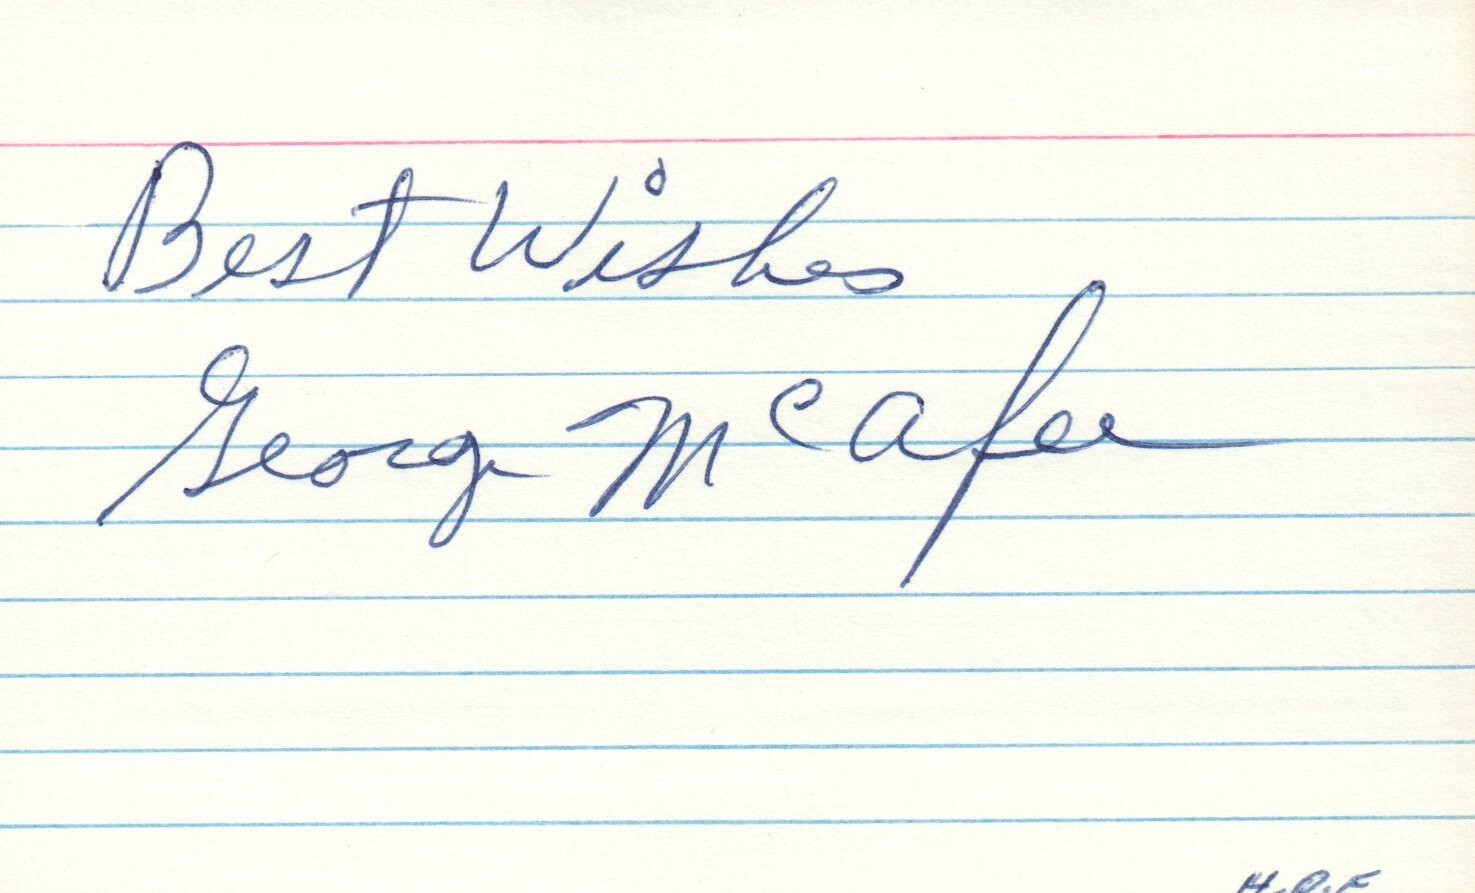 Best Wishes
George McAfee
H.O.F